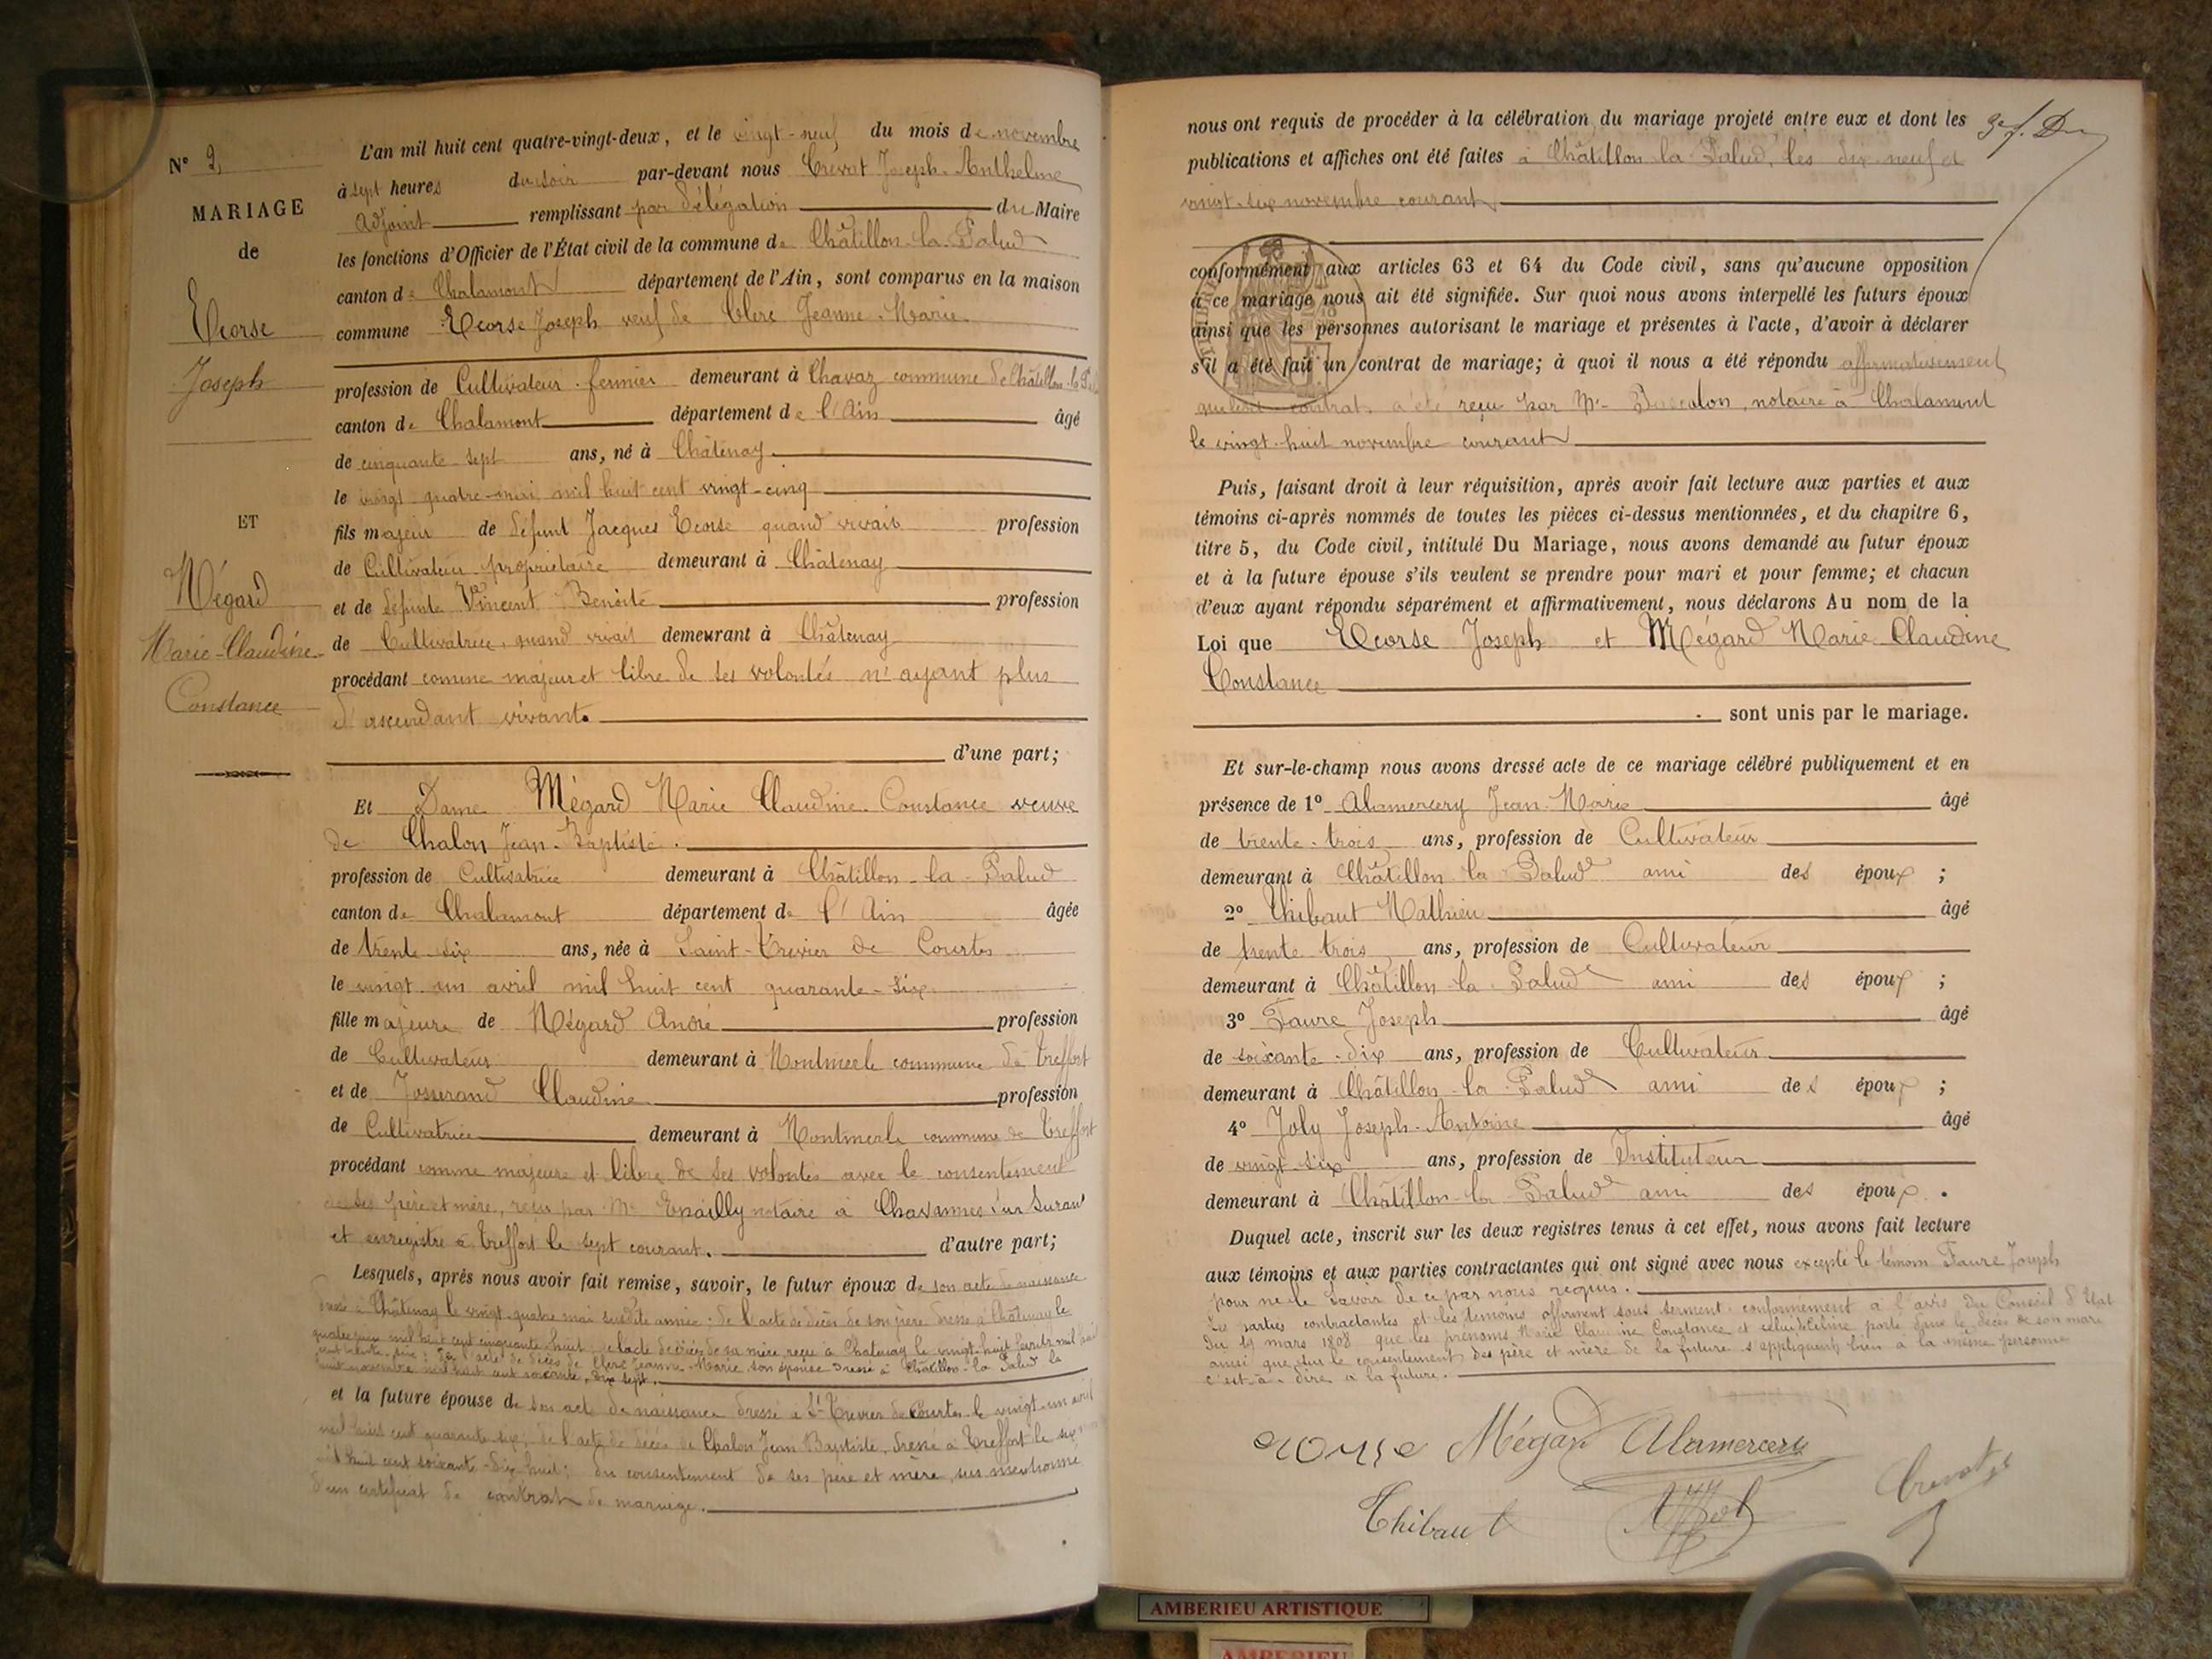 N° 9
MARIAGE
de
Ecorse
Joseph
ET
Mégard
Marie-Claudine
Constance
L'an mil huit cent quatre-vingt-deux, et le vingt-neuf du mois de novembre
à sept heures du soir par-devant nous Crevat Joseph-Anthelme
adjoint remplissant par délégation du Maire
les fonctions d'Officier de l'État civil de la commune de Châtillon-la-Palud
canton de Chalamont département de l'Ain, sont comparus en la maison
commune Ecorse Joseph veuf de Clerc Jeanne-Marie
profession de Cultivateur-fermier demeurant à Chavaz commune de Châtillon-la-
canton de Chalamont département de l'Ain âgé
de cinquante-sept ans, né à Châtenay
le vingt-quatre mai mil huit cent vingt-cinq
fils majeur de défunt Jacques Ecorse quand vivait profession
de Cultivateur propriétaire demeurant à Châtenay
et de défunte Vincent Benoite profession
de Cultivatrice, quand vivait demeurant à Châtenay
procédant comme majeur et libre de ses volontés n'ayant plus
d'ascendant vivant.
d'une part;
Et Dame Mégard Marie Claudine Constance veuve
de Chalon Jean-Baptiste.
profession de Cultivatrice demeurant à Châtillon-la-Palud
canton de Chalamont département de l'Ain âgée
de trente-six ans, née à Saint-Trevier de Courtes
le vingt-un avril mil huit cent quarante-six
fille majeure de Mégard André profession
de Cultivateur demeurant à Montmerle commune de Treffort
et de Josserand Claudine profession
de Cultivatrice demeurant à Montmerle commune de Treffort
procédant comme majeure et libre de ses volontés avec le consentement
de ses père et mère, reçu par Me notaire à Chavannes sur Suran
et enregistré à Treffort le sept courant. d'autre part;
Lesquels, après nous avoir fait remise, savoir, le futur époux de son acte de naissance
dressé à Châtenay le vingt-quatre mai susdite année; de l'acte de décès de son père dressé à Châtenay le
quatre juin mil huit cent cinquante-huit, de l'acte de décès de sa mère, reçu à Chatenay le vingt-huit mil huit
cent trente ; de l'acte de décès de Clerc Jeanne-Marie son épouse dressé à Châtillon-la-Palud le
huit novembre mil huit cent soixante-dix sept.
et la future épouse de son acte de naissance dressé à St-Trevier de Courtes le vingt-un avril
mil huit cent quarante six; de l'acte de décès de Chalon Jean Baptiste, dressé à Treffort le six
mil huit cent soixante-dix-huit; du consentement de ses père et mère, sus mentionné
d'un certificat de contrat de mariage.
nous ont requis de procéder à la célébration du mariage projeté entre eux et dont les
publications et affiches ont été faites à Châtillon-la-Palud, les dix-neuf et
vingt-six novembre courant
conformément aux articles 63 et 64 du Code civil, sans qu'aucune opposition
à ce mariage nous ait été signifiée. Sur quoi nous avons interpellé les futurs époux
ainsi que les personnes autorisant le mariage et présentes à l'acte, d'avoir à déclarer
s'il a été fait un contrat de mariage; à quoi il nous a été répondu affirmativement
contrat a été reçu par Me notaire à Chalamont
le vingt-huit novembre courant
Puis, faisant droit à leur réquisition, après avoir fait lecture aux parties et aux
témoins ci-après nommés de toutes les pièces ci-dessus mentionnées, et du chapitre 6,
titre 5, du Code civil, intitulé Du Mariage, nous avons demandé au futur époux
et à la future épouse s'ils veulent se prendre pour mari et pour femme; et chacun
d'eux ayant répondu séparément et affirmativement, nous déclarons Au nom de la
Loi que Ecorse Joseph et Mégard Marie-Claudine
Constance
sont unis par le mariage.
Et sur-le-champ nous avons dressé acte de ce mariage célébré publiquement et en
présence de 1° Alamercery Jean-Marie âgé
de trente-trois ans, profession de Cultivateur
demeurant à Châtillon-la-Palud ami des époux ;
2° Thibaut Mathieu âgé
de trente trois ans, profession de Cultivateur
demeurant à Châtillon-la-Palud ami des époux ;
3° Faure Joseph âgé
de soixante-dix ans, profession de Cultivateur
demeurant à Châtillon-la-Palud ami des époux ;
4° Joly Joseph-Antoine âgé
de vingt-six ans, profession de Instituteur
demeurant à Châtillon-la-Palud ami des époux.
Duquel acte, inscrit sur les deux registres tenus à cet effet, nous avons fait lecture
aux témoins et aux parties contractantes qui ont signé avec nous excepté le témoin Faure Joseph
pour ne le savoir de ce par nous requis.
Les parties contractantes et les témoins affirment sous serment conformément à l'avis du Conseil d'Etat
du 19 mars 1808 que les prénoms Marie Claudine Constance et celui de Celine porté dans le décès de son mari
ainsi que sur le consentement des père et mère de la future s'appliquent bien à la même personne
c'est-à-dire à la future.
ecorse Mégard Alamercery
Thibaut Crevat
AMBERIEU ARTISTIQUE
AMBERIEU